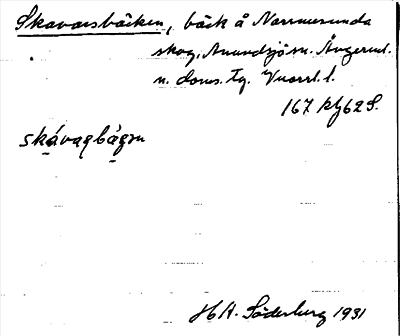 Skavarsbäcken, bäck å Norrmesunda
skog, Anundsjö sn. Ångerml.
n. doms. Tg. Vuorrl. l.
167 kf 62 S.
skávaɋbágɜn
H. A. Söderberg 1931